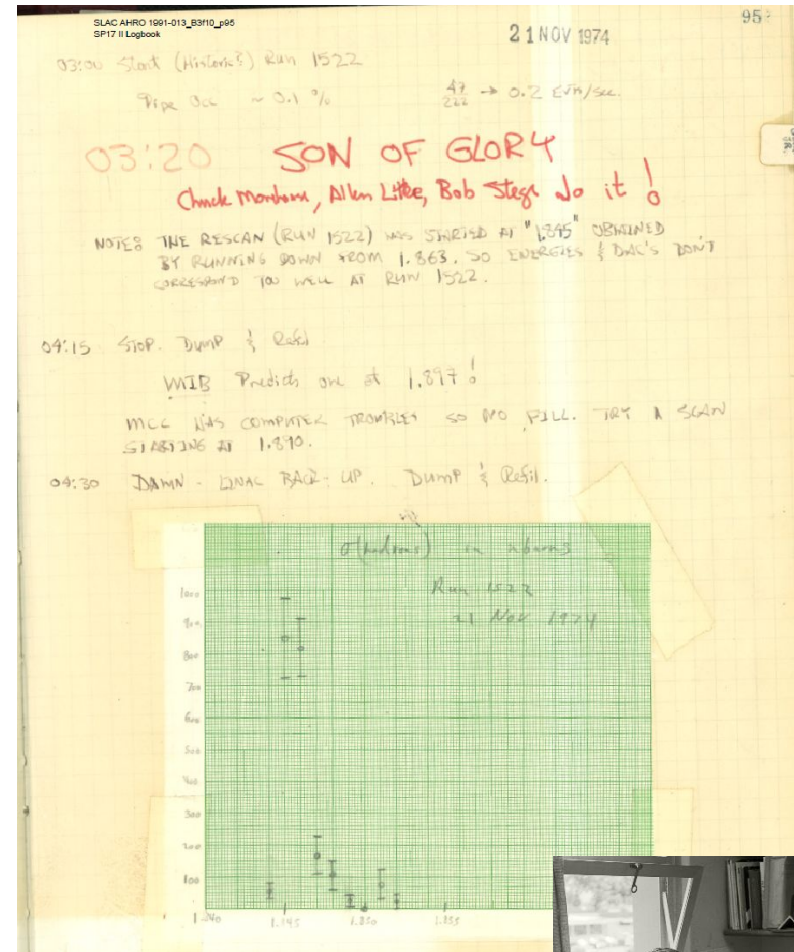 95
SLAC AHRO 1991-013_B3f10_p95
SP17 II Logbook
21 NOV 1974
03:00 Start (Historic?) Run 1522
Pipe Occ ~ 0.1 %
47/222 → 0.2 /sec.
03:20 SON OF GLORY
Chuck Morehouse, Allen Litke, Bob Stege do it!
NOTE: THE RESCAN (RUN 1522) WAS STARTED AT "1.845" OBTAINED
BY RUNNING DOWN FROM 1.863. SO ENERGIES & DAC'S DON'T
CORRESPOND TOO WELL AT RUN 1522.
04:15 STOP. DUMP & Refil
MIB Predicts one at 1.897!
MCC HAS COMPUTER TROUBLES SO NO FILL. TRY A SCAN
STARTING AT 1.890.
04:30 DAMN - LINAC BACK-UP. Dump & Refil.
σ(hadrons) in nbarns
Run 1522
21 Nov 1974
1000
900
800
700
600
500
400
300
200
100
1.840 1.845 1.850 1.855